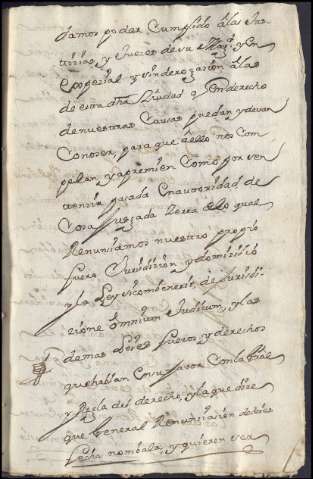 damos poder Cumplido a las Jus
ticias, y Jueces de su Magd. y en
especial y sin derogacion a las
de esta dha Ciudad q. Con derecho
de nuestras Causas puedan y devan
Conoser, para que a ello nos Com
pelan, y apremien como por sen
tencia pasada en autoridad de
Cosa Jusgada zerca de lo qual
Renunciamos nuestro propio
fuero Jurisdicion, y domicilio
y la Ley sicombenerit, de Jurisdi
cione omnium Judicum, y las
demas Leyes fueros, y derechos
que hablan en su favor Con la Gral
y Regla del derecho, y la que dice
que General Renunciacion de Leies
fecha nombala, y quieren sea